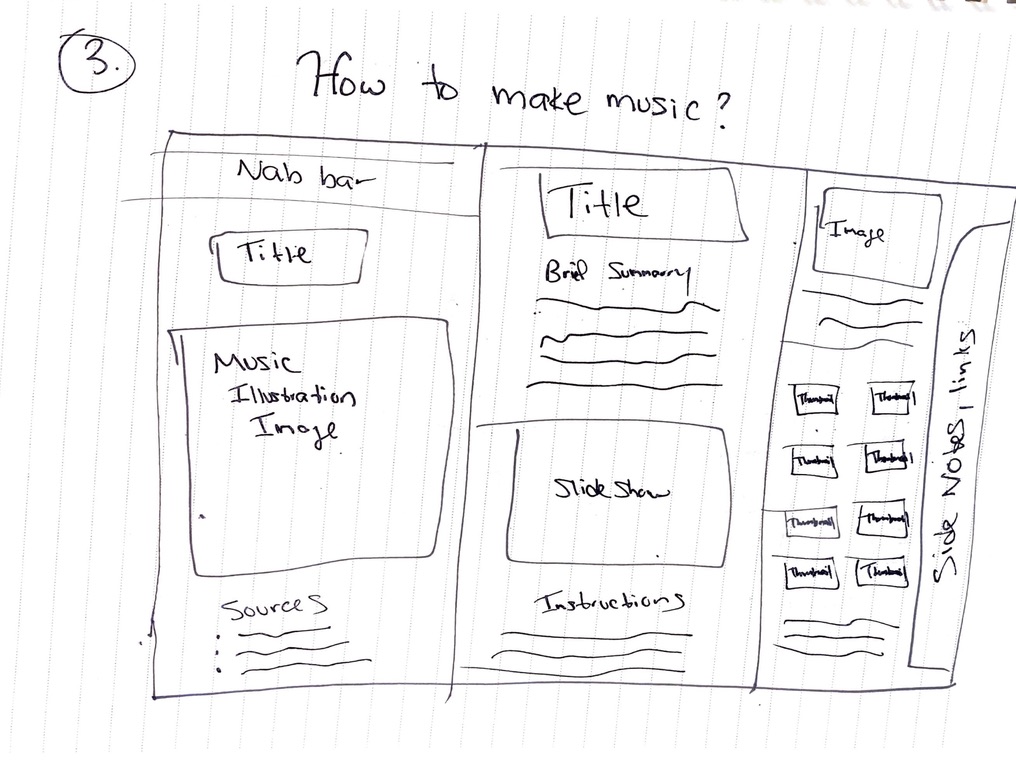 3.
How to make music?
Nab bar
Title
Music
Illustration
Image
Sources
Title
Brief Summary
Slide Show
Instructions
Image
Thumbnail Thumbnail
Thumbnail Thumbnail
Thumbnail Thumbnail
Thumbnail Thumbnail
Side Notes, links